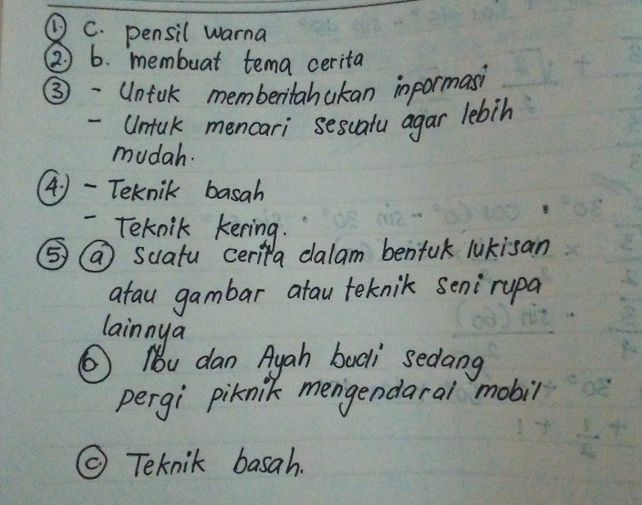 ① C. pensil warna
②. b. membuat tema cerita
③ - Untuk memberitahukan inpormasi
- Untuk mencari sesuatu agar lebih
mudah.
④.) - Teknik basah
- Teknik kering.
⑤ ⓐ suatu cerita dalam bentuk lukisan
atau gambar atau teknik seni rupa
lainnya
ⓑ Ibu dan Ayah budi sedang
pergi piknik mengendarai mobil
ⓒ Teknik basah.